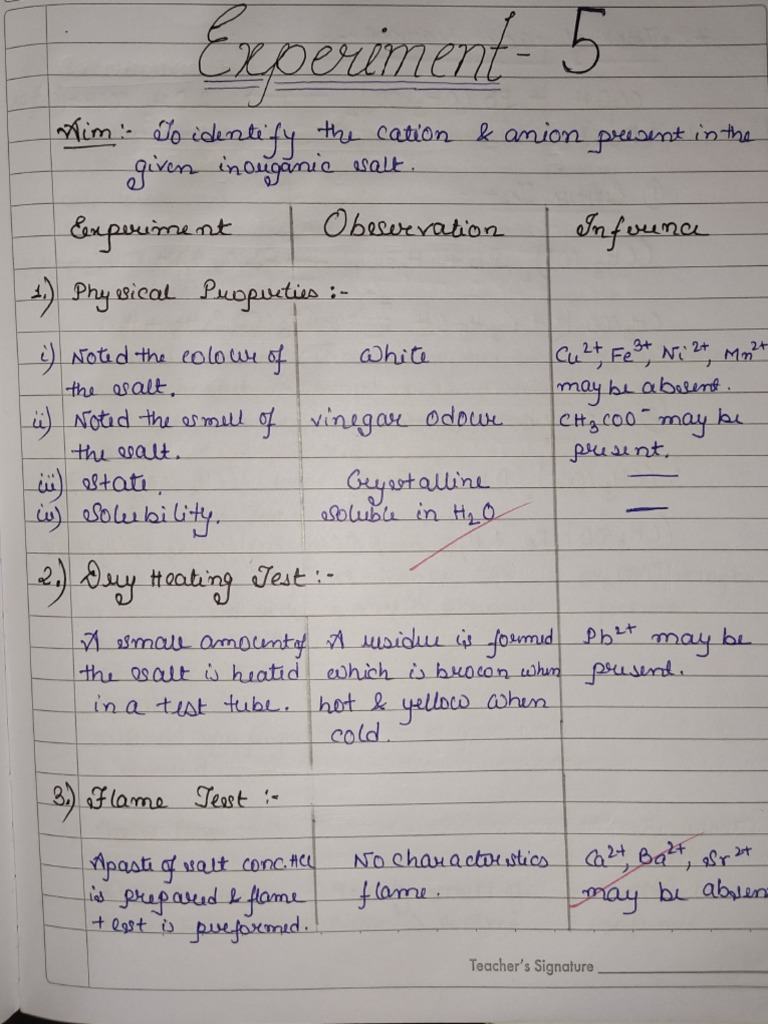 Experiment - 5
Aim :- To identify the cation & anion present in the
given inorganic salt.
Experiment Observation Inference
1.) Physical Properties :-
i) Noted the colour of White Cu2+, Fe3+, Ni2+, Mn2+
the salt. may be absent.
ii) Noted the smell of vinegar odour CH3COO- may be
the salt. present.
iii) State. Crystalline —
iv) Solubility. Soluble in H2O —
2.) Dry Heating Test :-
A small amount of A residue is formed Pb2+ may be
the salt is heated which is brown when present.
in a test tube. hot & yellow when
cold.
3.) Flame Test :-
A paste of salt conc. HCl No characteristics Ca2+, Ba2+, Sr2+
is prepared & flame flame. may be absen
test is preformed.
Teacher's Signature